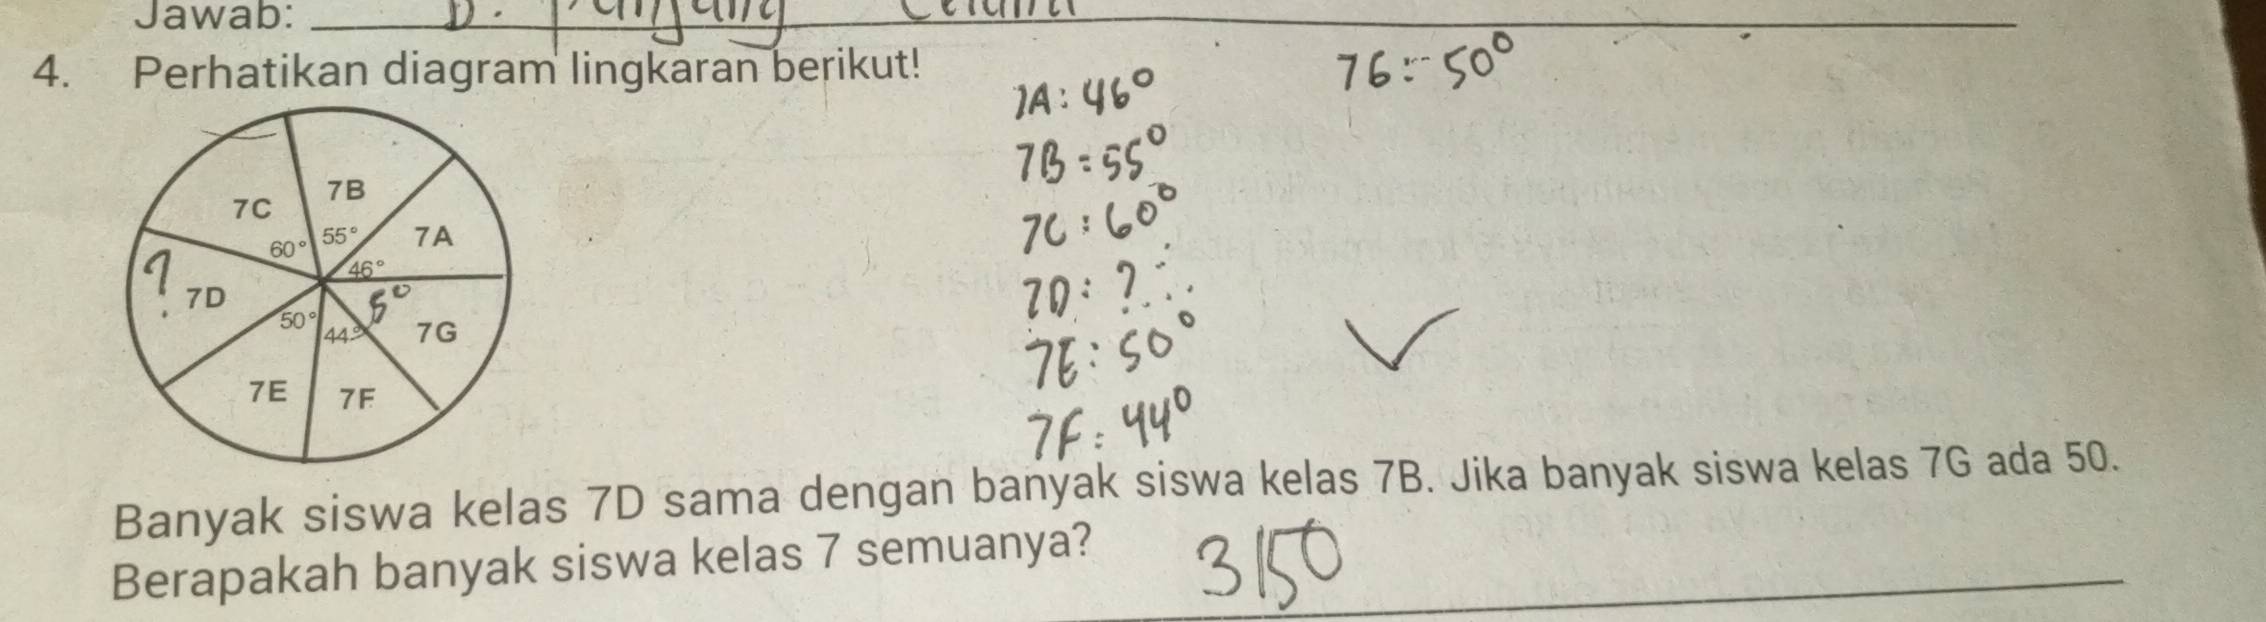 Jawab: D. Panjang
4. Perhatikan diagram lingkaran berikut!
7G: 50°
7A: 46°
7B = 55°
7C : 60°
7D : ?
7E : 50°
7F : 44°
7C
7B
7A
60°
55°
46°
?
7D
50°
44°
5°
7G
7E
7F
Banyak siswa kelas 7D sama dengan banyak siswa kelas 7B. Jika banyak siswa kelas 7G ada 50.
Berapakah banyak siswa kelas 7 semuanya? 3150